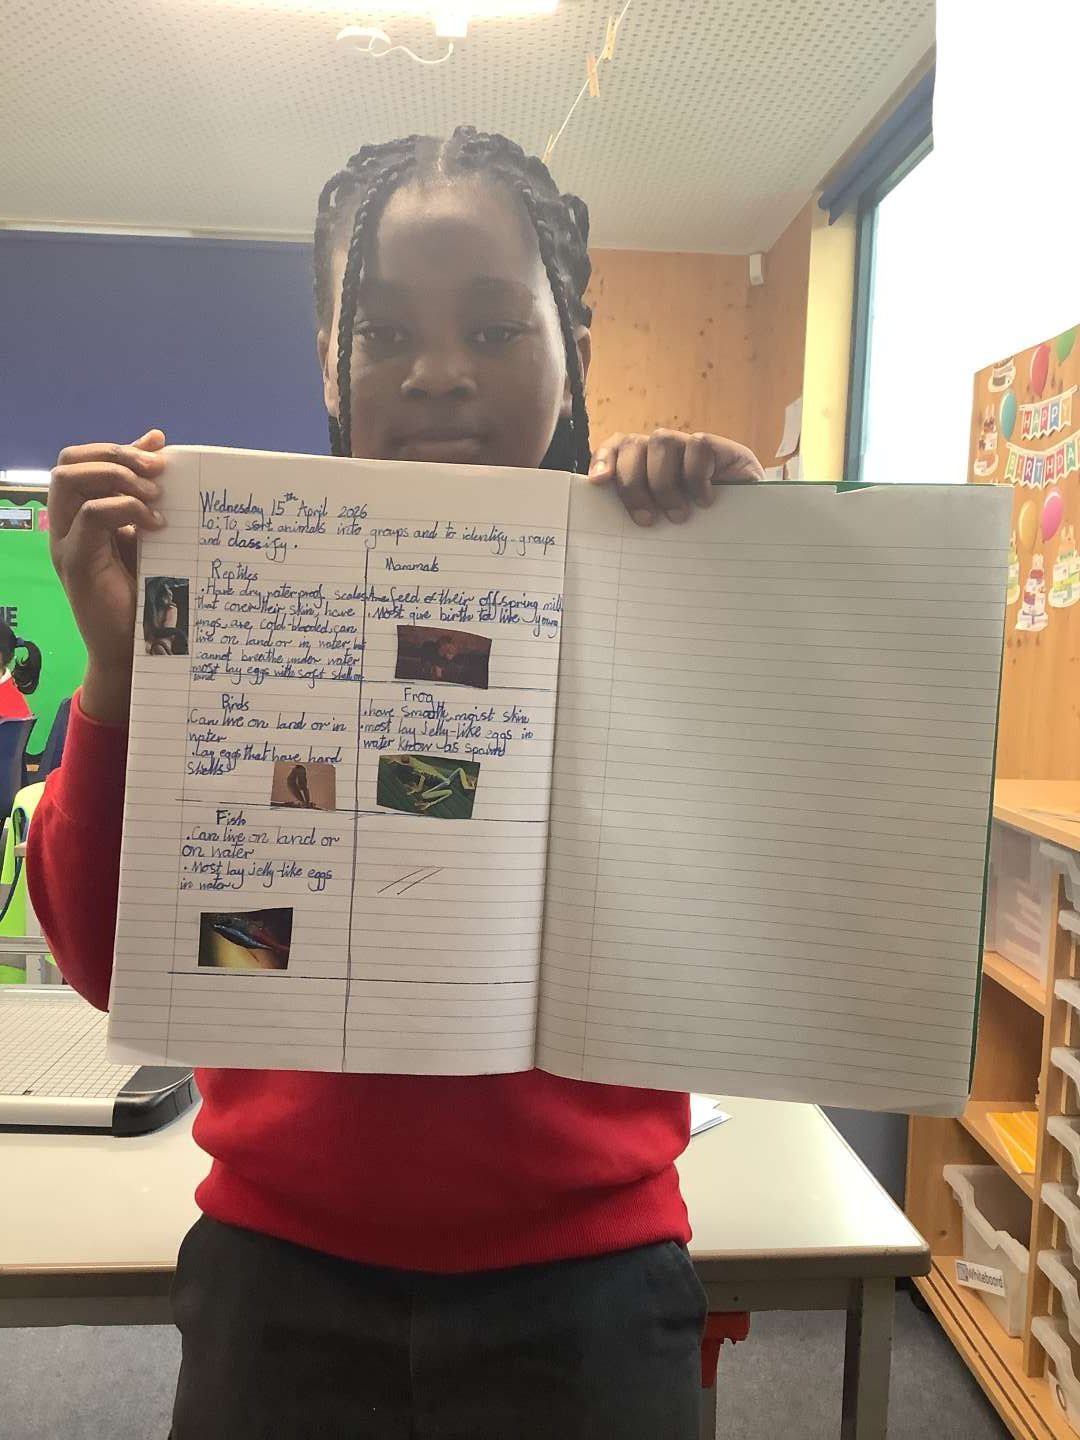 Wednesday 15th April 2026
Lo: To sort animals into groups and to identify groups
and classify.
Reptiles
• Have dry, waterproof scales
that cover their skin, have
ungs, are cold-blooded, can
live on land or in water, but
cannot breathe under water
most lay eggs with soft shell on
land
Mammals
feed of their offspring milk
• Most give birth to live young
Birds
Can live on land or in
water
• Lay eggs that have hard
shells
Frog
• have smooth, moist skin
• most lay jelly-like eggs in
water know as spawn
Fish
• Can live on land or
on water
• Most lay jelly-like eggs
in water
HAPPY
BIRTHDA
Whiteboard